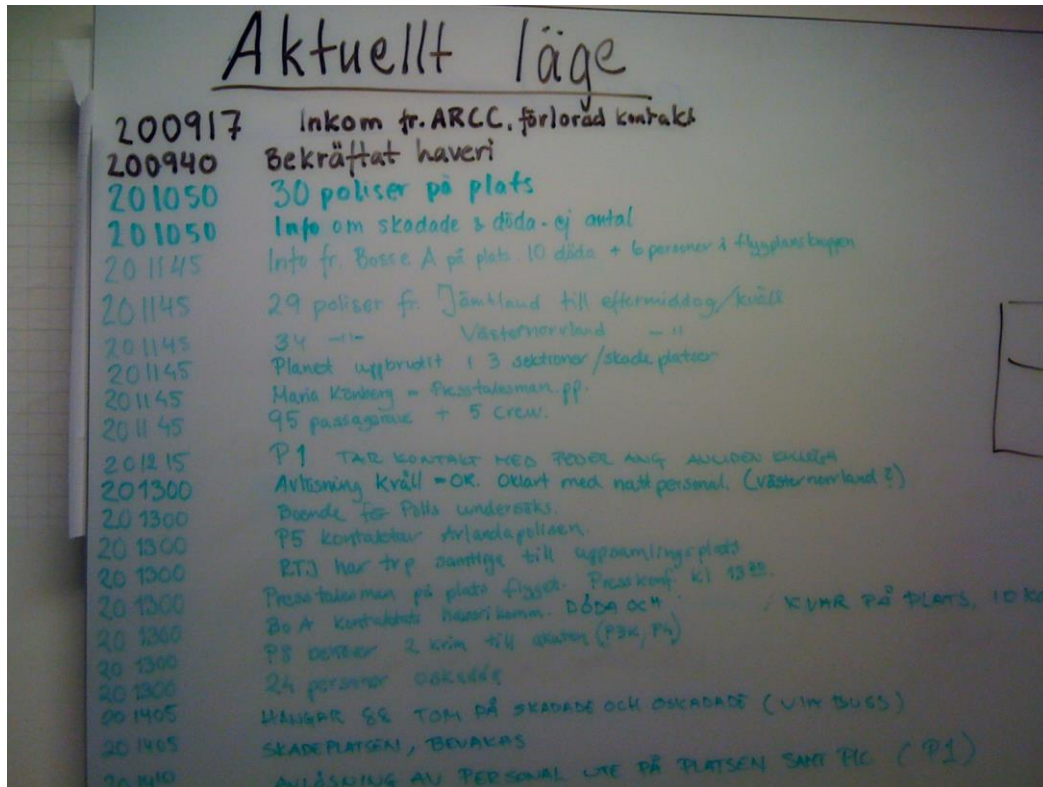 Aktuellt läge
200917 Inkom fr. ARCC, förlorad kontakt
200940 Bekräftat haveri
201050 30 poliser på plats
201050 Info om skadade & döda - ej antal
201145 Info fr. Bosse A på plats. 10 döda + 6 personer i flygplanskroppen
201145 29 poliser fr. Jämtland till eftermiddag/kväll
201145 34 -"- Västernorrland -"
201145 Planet uppbrutit i 3 sektioner/skadeplatser
201145 Maria = Presstalesman pp.
201145 95 passagerare + 5 crew.
201215 P1 TAR KONTAKT MED PEDER ANG
201300 Avlösning Kväll = OK. Oklart med nattpersonal. (västernorrland?)
201300 Boende för Polis undersöks.
201300 P5 kontaktar Arlandapolisen.
201300 RTJ har trp samtliga till uppsamlingsplats
201300 Presstalesman på plats flyget. Presskonf. kl 13
201300 Bo A kontaktats haverikomm. DÖDA OCH / KVAR PÅ PLATS, 10
201300 P8 2 krim till akuten (P3K, P4)
201300 24 personer oskadda
201405 HANGAR 88 TOM PÅ SKADADE OCH OSKADADE (VIA BUSS)
201405 SKADEPLATSEN, BEVAKAS
201410 AVLÖSNING AV PERSONAL UTE PÅ PLATSEN SAMT PIC (P1)